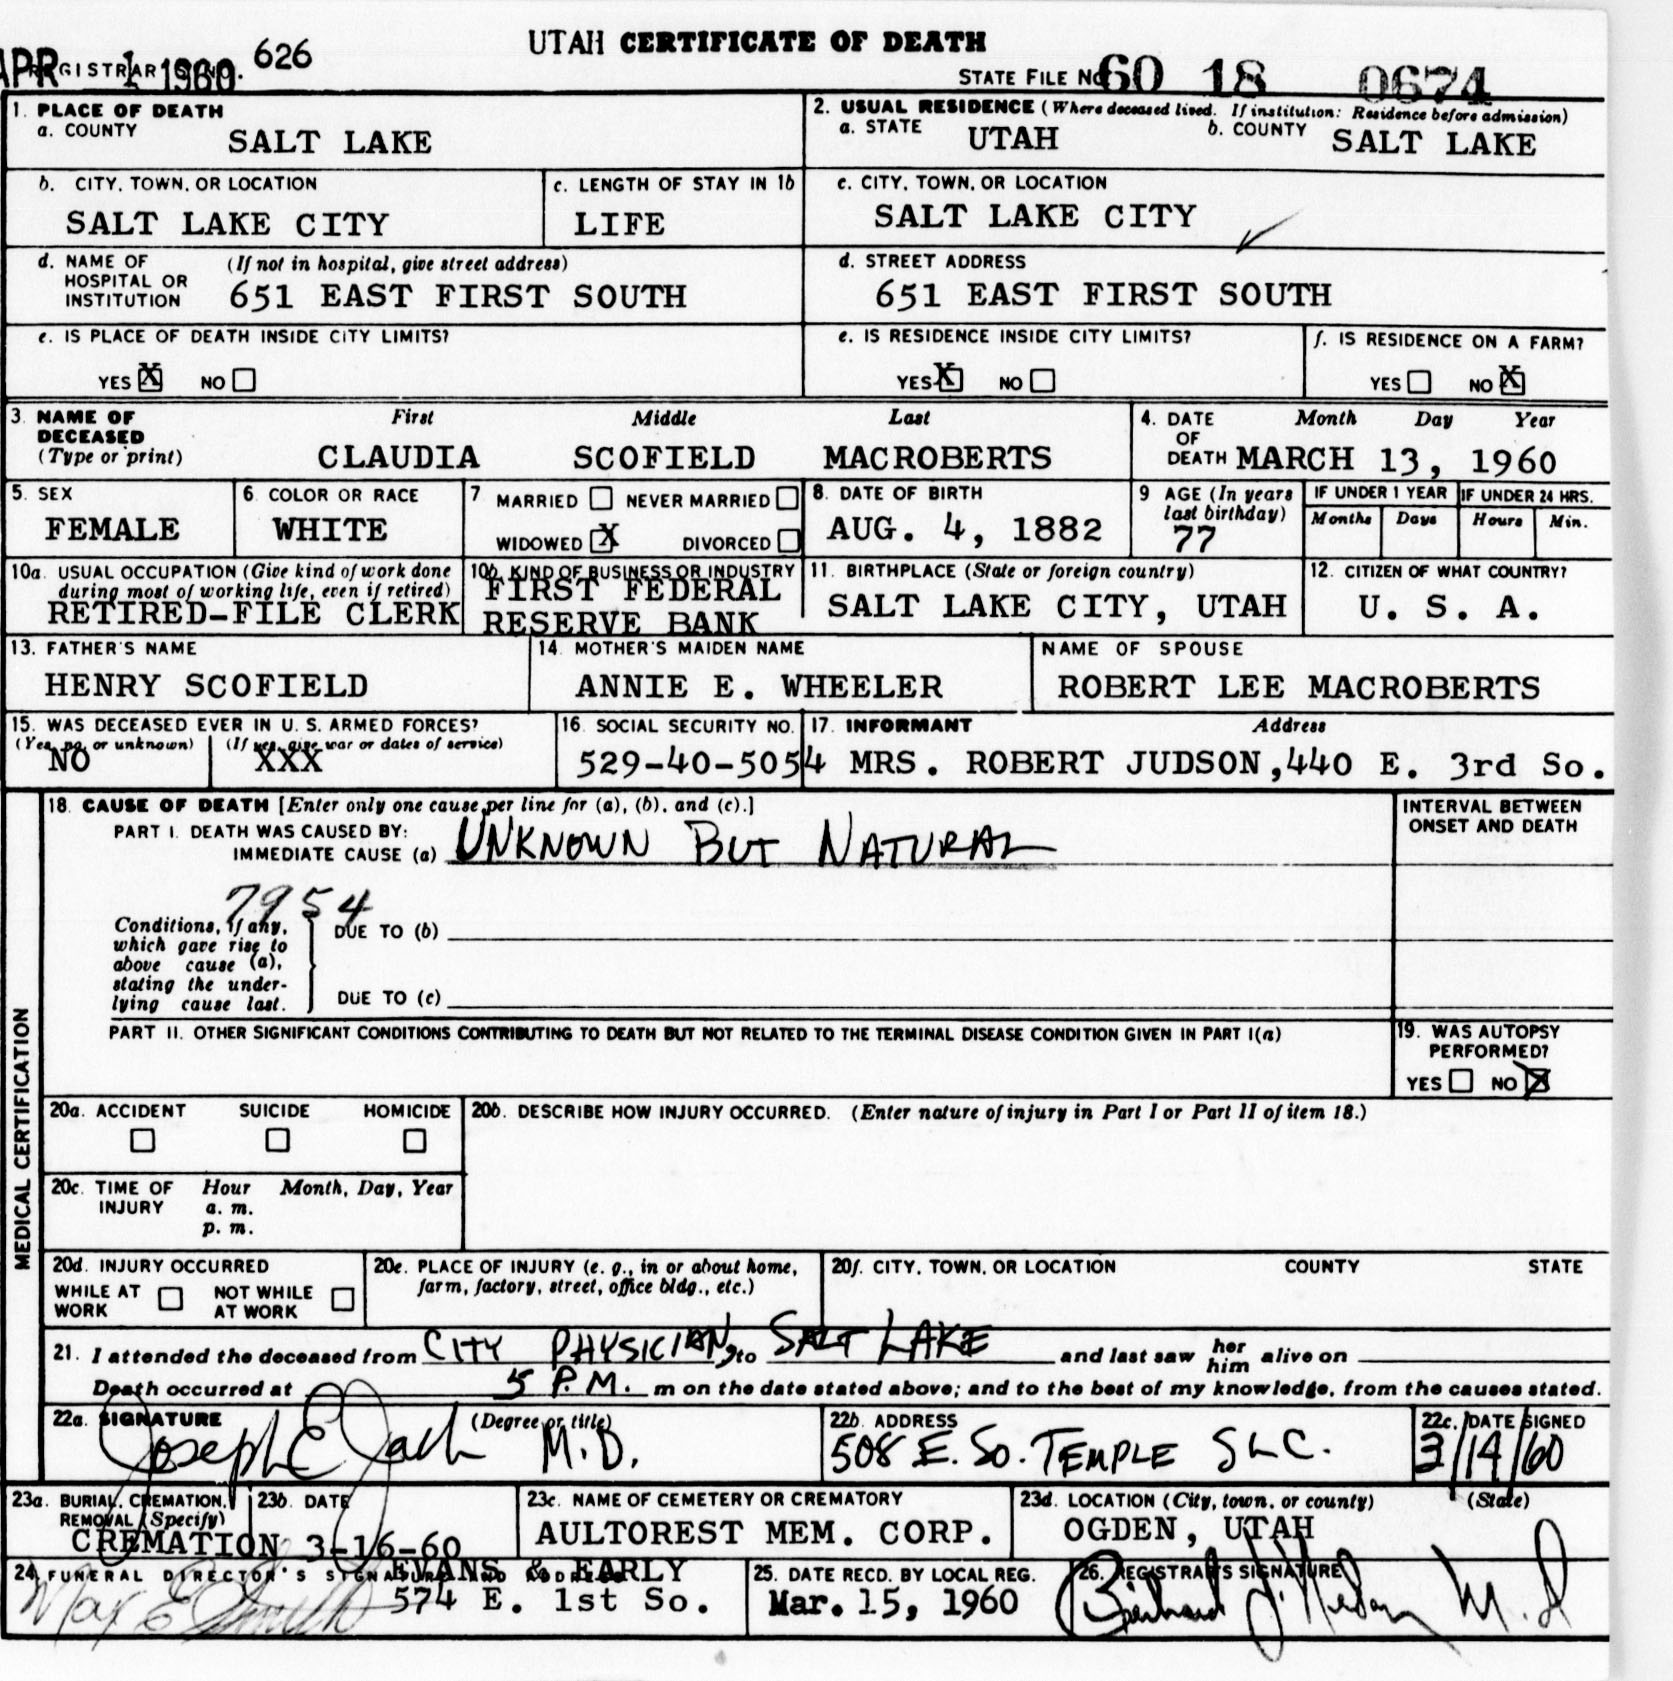 UTAH CERTIFICATE OF DEATH
APR 1 1960 REGISTRAR'S NO. 626
STATE FILE NO. 60 18 0674
1. PLACE OF DEATH
a. COUNTY SALT LAKE
2. USUAL RESIDENCE (Where deceased lived. If institution: Residence before admission)
a. STATE UTAH b. COUNTY SALT LAKE
b. CITY, TOWN, OR LOCATION SALT LAKE CITY
c. LENGTH OF STAY IN 1b LIFE
c. CITY, TOWN, OR LOCATION SALT LAKE CITY
d. NAME OF HOSPITAL OR INSTITUTION (If not in hospital, give street address) 651 EAST FIRST SOUTH
d. STREET ADDRESS 651 EAST FIRST SOUTH
e. IS PLACE OF DEATH INSIDE CITY LIMITS? YES X NO
e. IS RESIDENCE INSIDE CITY LIMITS? YES X NO
f. IS RESIDENCE ON A FARM? YES NO X
3. NAME OF DECEASED (Type or print) First Middle Last
CLAUDIA SCOFIELD MACROBERTS
4. DATE OF DEATH Month Day Year
MARCH 13, 1960
5. SEX FEMALE
6. COLOR OR RACE WHITE
7. MARRIED NEVER MARRIED
WIDOWED X DIVORCED
8. DATE OF BIRTH AUG. 4, 1882
9. AGE (In years last birthday) 77
IF UNDER 1 YEAR Months Days
IF UNDER 24 HRS. Hours Min.
10a. USUAL OCCUPATION (Give kind of work done during most of working life, even if retired)
RETIRED-FILE CLERK
10b. KIND OF BUSINESS OR INDUSTRY
FIRST FEDERAL
RESERVE BANK
11. BIRTHPLACE (State or foreign country)
SALT LAKE CITY, UTAH
12. CITIZEN OF WHAT COUNTRY?
U. S. A.
13. FATHER'S NAME
HENRY SCOFIELD
14. MOTHER'S MAIDEN NAME
ANNIE E. WHEELER
NAME OF SPOUSE
ROBERT LEE MACROBERTS
15. WAS DECEASED EVER IN U. S. ARMED FORCES?
(Yes, no, or unknown) (If yes, give war or dates of service)
NO XXX
16. SOCIAL SECURITY NO.
529-40-5054
17. INFORMANT Address
MRS. ROBERT JUDSON, 440 E. 3rd So.
MEDICAL CERTIFICATION
18. CAUSE OF DEATH [Enter only one cause per line for (a), (b), and (c).]
INTERVAL BETWEEN ONSET AND DEATH
PART I. DEATH WAS CAUSED BY:
IMMEDIATE CAUSE (a) UNKNOWN BUT NATURAL
7954
Conditions, if any, which gave rise to above cause (a), stating the underlying cause last.
DUE TO (b)
DUE TO (c)
PART II. OTHER SIGNIFICANT CONDITIONS CONTRIBUTING TO DEATH BUT NOT RELATED TO THE TERMINAL DISEASE CONDITION GIVEN IN PART I(a)
19. WAS AUTOPSY PERFORMED?
YES NO X
20a. ACCIDENT SUICIDE HOMICIDE
20b. DESCRIBE HOW INJURY OCCURRED. (Enter nature of injury in Part I or Part II of item 18.)
20c. TIME OF INJURY Hour Month, Day, Year
a. m.
p. m.
20d. INJURY OCCURRED
WHILE AT WORK NOT WHILE AT WORK
20e. PLACE OF INJURY (e. g., in or about home, farm, factory, street, office bldg., etc.)
20f. CITY, TOWN, OR LOCATION COUNTY STATE
21. I attended the deceased from CITY PHYSICIAN, to SALT LAKE and last saw her him alive on
Death occurred at 5 P.M. m on the date stated above; and to the best of my knowledge, from the causes stated.
22a. SIGNATURE (Degree or title)
Joseph E Jack M.D.
22b. ADDRESS
508 E. So. TEMPLE SLC.
22c. DATE SIGNED
3/14/60
23a. BURIAL, CREMATION, REMOVAL (Specify)
CREMATION
23b. DATE
3-16-60
23c. NAME OF CEMETERY OR CREMATORY
AULTOREST MEM. CORP.
23d. LOCATION (City, town, or county) (State)
OGDEN, UTAH
24. FUNERAL DIRECTOR'S SIGNATURE AND ADDRESS
EVANS & EARLY
Max E Smith 574 E. 1st So.
25. DATE RECD. BY LOCAL REG.
Mar. 15, 1960
26. REGISTRAR'S SIGNATURE
M.D